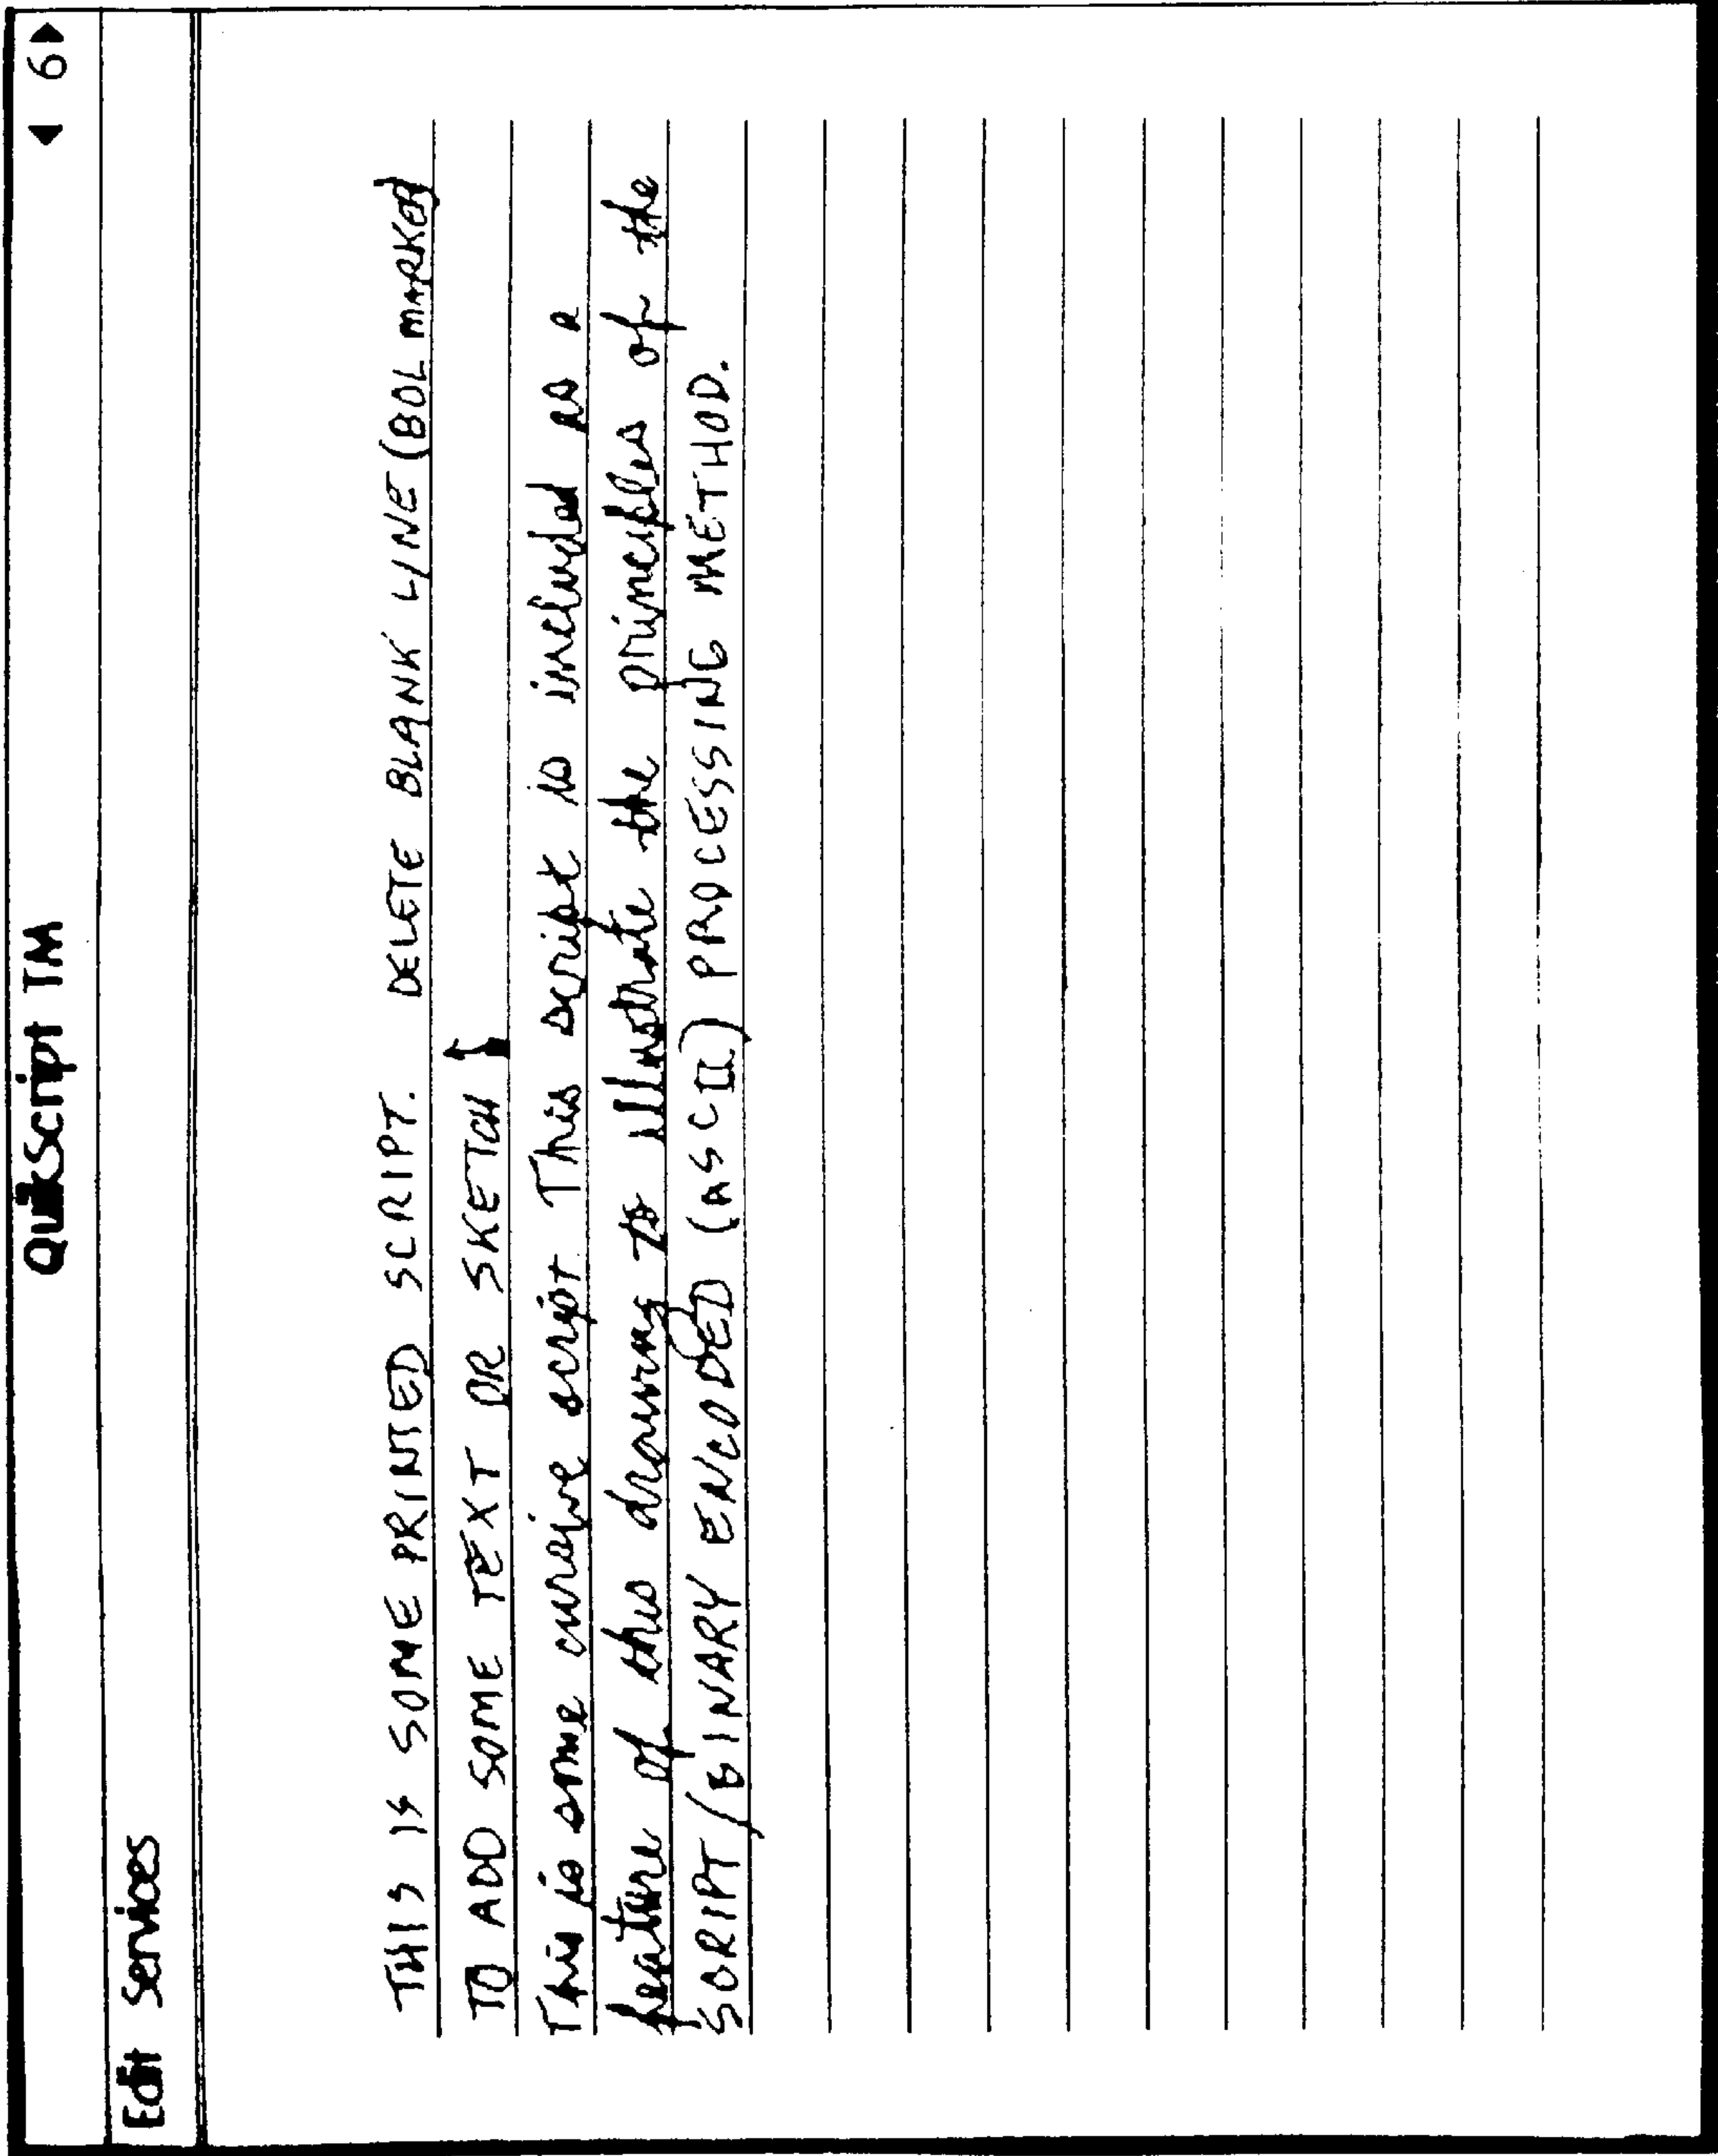 QuikScript TM ◀ 6▶
Edit Services
THIS IS SOME PRINTED SCRIPT. DELETE BLANK LINE (BOL MARKER)
TO ADD SOME TEXT OR SKETCH
This is some cursive script This script is included as a
feature of this drawing to illustrate the principles of the
SCRIPT/BINARY ENCODED (ASCII) PROCESSING METHOD.